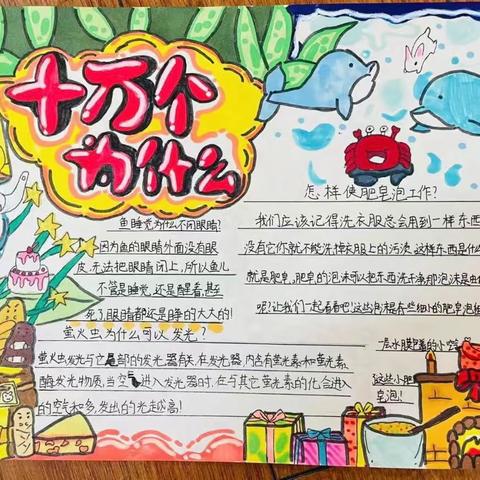 十万个
为什么
鱼睡觉为什么不闭眼睛?
因为鱼的眼睛外面没有眼
皮,无法把眼睛闭上,所以鱼儿
不管是睡觉,还是醒着,甚至
死了,眼睛都还是睁的大大的!
萤火虫为什么可以发光?
萤火虫发光与它尾部的发光器有关,在发光器内含有萤光素和萤光素
酶发光物质,当空气进入发光器时,在与其它萤光素的化合进入
的空气和多,发出的光越高!
怎样使肥皂泡工作?
我们应该记得洗衣服总会用到一样东西
没有它你就不能洗掉衣服上的污渍,这样东西是什么
就是肥皂,肥皂的泡沫可以把东西洗干净那泡沫是由
呢?让我们一起看看吧!这些泡是有些细小的肥皂泡组
一层水膜包着的小空
这些小肥
皂泡!